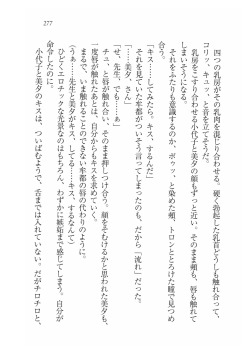 277
四つの乳房がその乳肉を混じり合わせる。硬く勃起した乳首どうしも触れ合って、
コリッ、キュッ、と音を立てそうだ。
乳房をこすり合わせる小代子と美夕の顔もずっと近い。そのまま頬も、唇も触れて
それをふたりも意識するのか、ポウッ、と染めた頬、トロンととろけた瞳で見つめ
合う。
「キス……してみたら。キス、するんだ」
それを見ていた牟都がついそう言ってしまったのも、だから「流れ」だった。
「……美夕、さん」
「せ、先生、でも……ぁ」
チュ、と唇が触れ合い、そのまま押しつけ合う。顔をそむけるかと思われた美夕も、
一度唇が触れたあとは、自分からもキスを求めていく。
まるで、いま触れることのできない牟都の唇の代わりのように。
(うぁ……先生と美夕がキス、してる……キス、するなんて)
ひどくエロチックな光景なのはもちろん、わずかに嫉妬まで感じてしまう。自分が
命令したのに。
小代子と美夕のキスは、ついばむようで、舌までは入れていない。だがチロチロと、